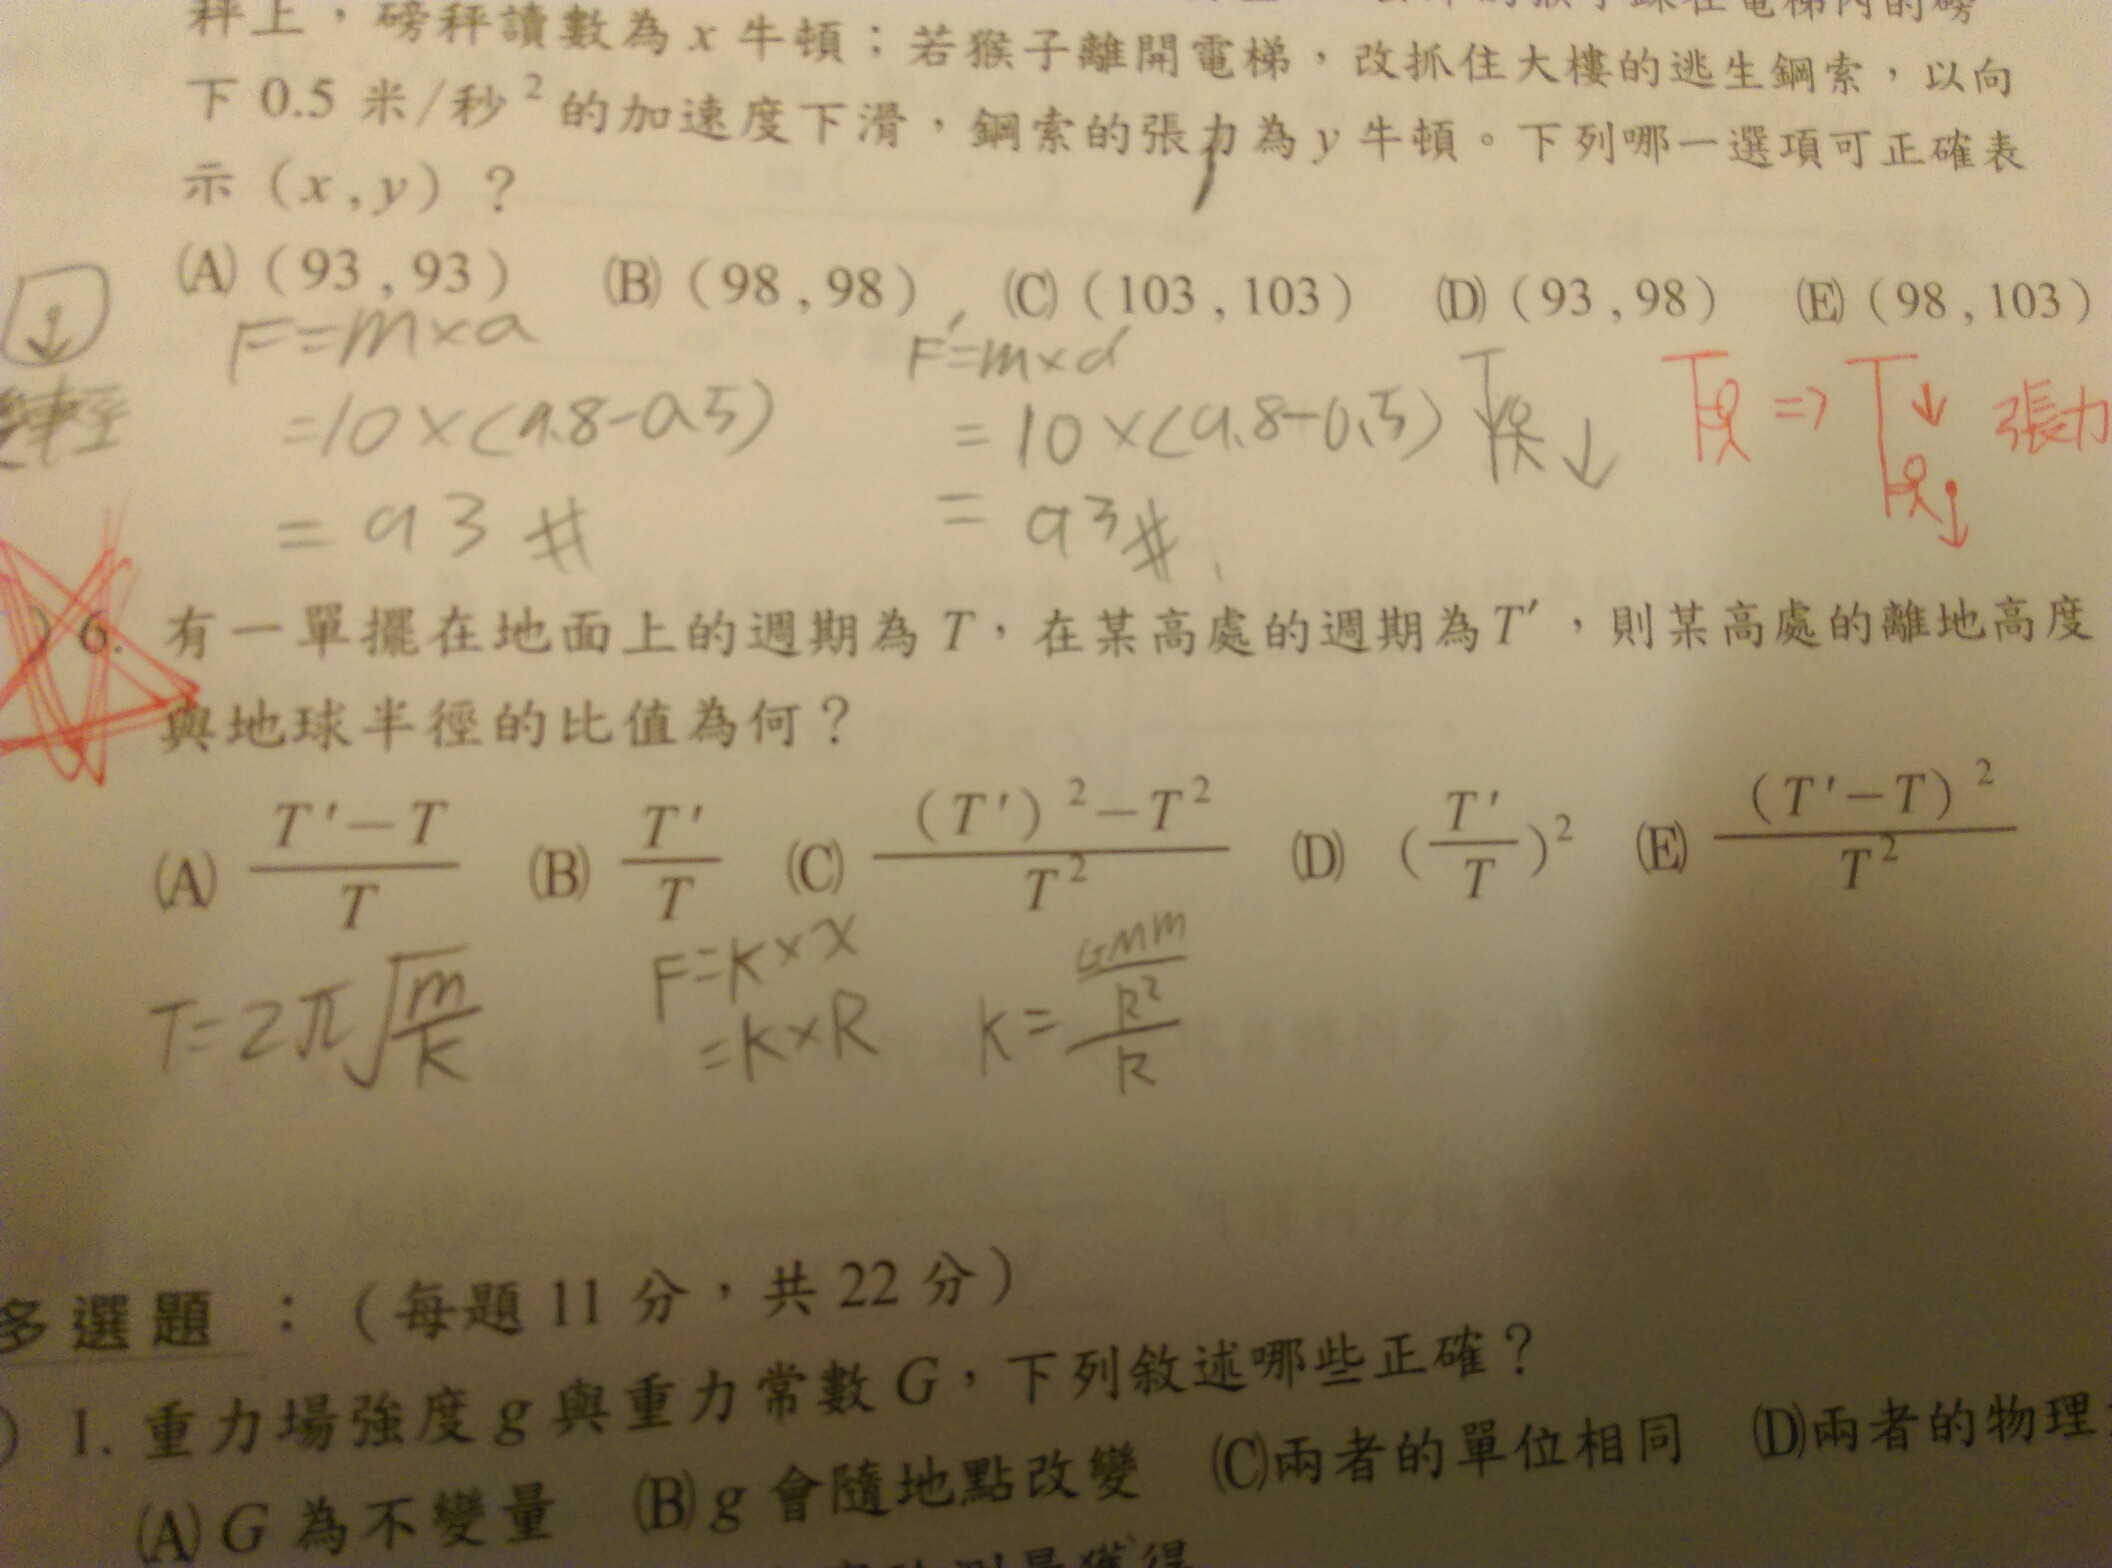 秤上，磅秤讀數為 x 牛頓；若猴子離開電梯，改抓住大樓的逃生鋼索，以向
下 0.5 米/秒² 的加速度下滑，鋼索的張力為 y 牛頓。下列哪一選項可正確表
示（x , y）？
(A)（93 , 93） (B)（98 , 98） (C)（103 , 103） (D)（93 , 98） (E)（98 , 103）
F=m×a
=10×(9.8-0.5)
=93#
F'=m×a'
=10×(9.8-0.5)
=93#
=> 張力
6. 有一單擺在地面上的週期為 T，在某高處的週期為 T′，則某高處的離地高度
與地球半徑的比值為何？
(A) (T′−T)/T (B) T′/T (C) ((T′)²−T²)/T² (D) (T′/T)² (E) (T′−T)²/T²
T=2π√(m/k)
F=k×x
=k×R
k=(GMm/R²)/R
多選題：（每題 11 分，共 22 分）
) 1. 重力場強度 g 與重力常數 G，下列敘述哪些正確？
(A) G 為不變量 (B) g 會隨地點改變 (C)兩者的單位相同 (D)兩者的物理